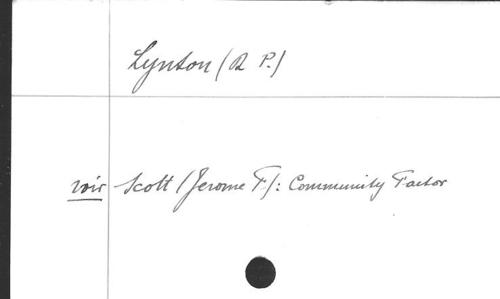 Lynton (R P.)
voir Scott (Jerome F.): Community Factor